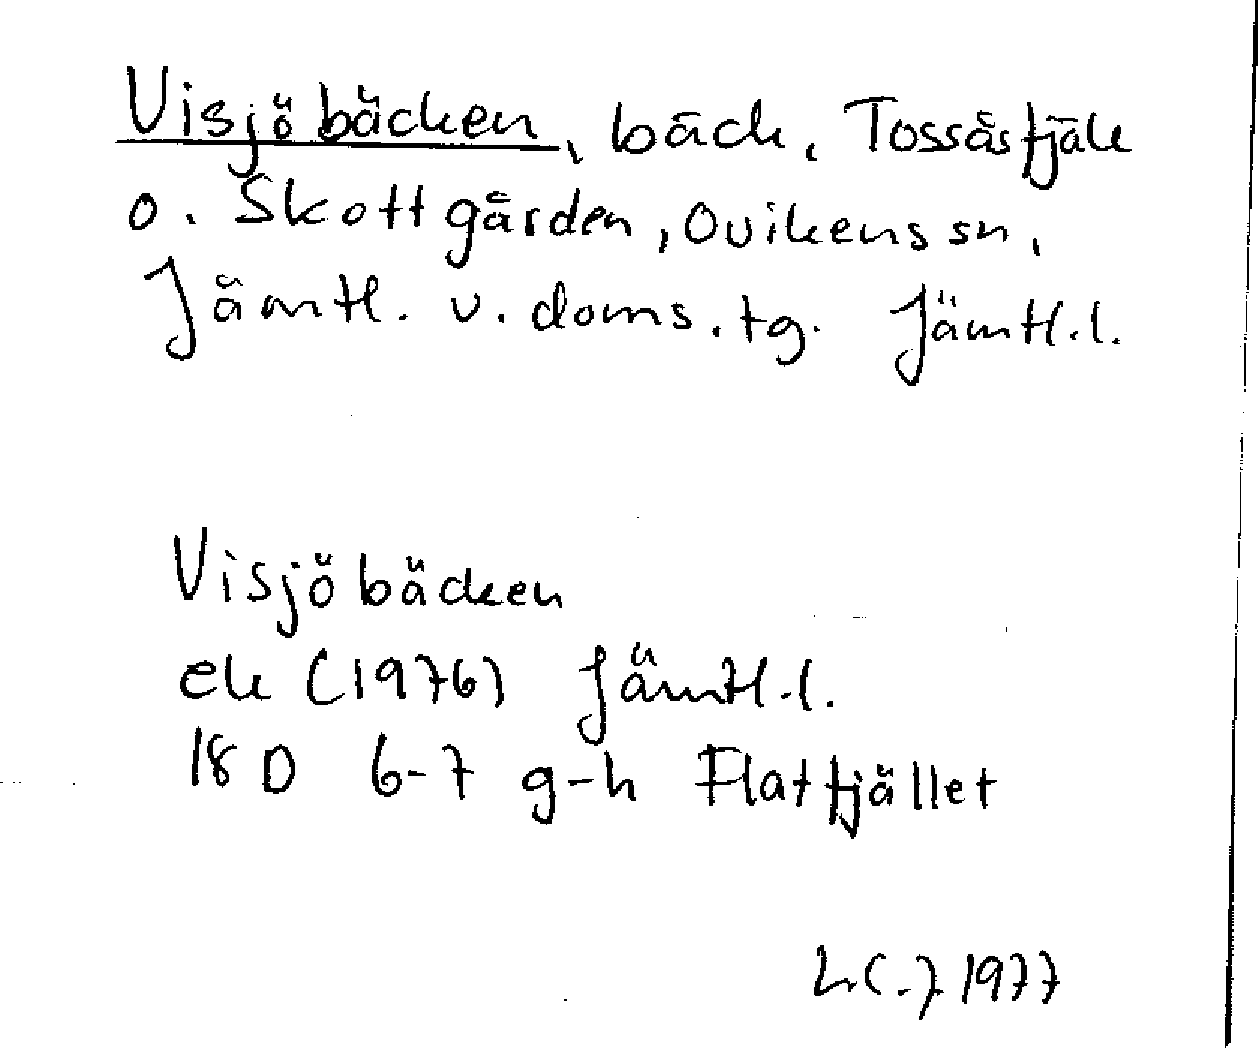 Visjöbäcken, bäck, Tossåsfjäll
o. Skottgården, Ovikens sn,
Jämtl. v. doms. tg. Jämtl. l.
Visjöbäcken
ek (1976) Jämtl. l.
18 D 6-7 g-h Flatfjället
1977